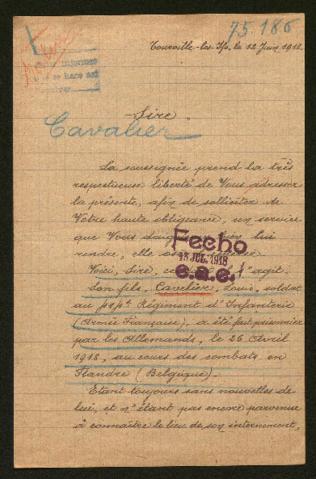 75.186
Tourville-les-Ifs, le 12 Juin 1918.
Sire
Cavalier
La soussignée prend la très
respectueuse liberté de Vous adresser
la présente, afin de solliciter de
Votre haute obligeance, un service
que Vous lui
rendre, elle
Fecho
15 JUL. 1918
e.a.e.
Voici, Sire, s'agit.
Son fils, Cavelier, Louis, soldat
au Régiment d'Infanterie
(Armée Française), a été fait prisonnier
par les Allemands, le 26 Avril
1918, au cours des combats en
Flandre (Belgique).
Etant toujours sans nouvelles de
lui, et n'étant pas encore parvenue
à connaître le lieu de son internement,